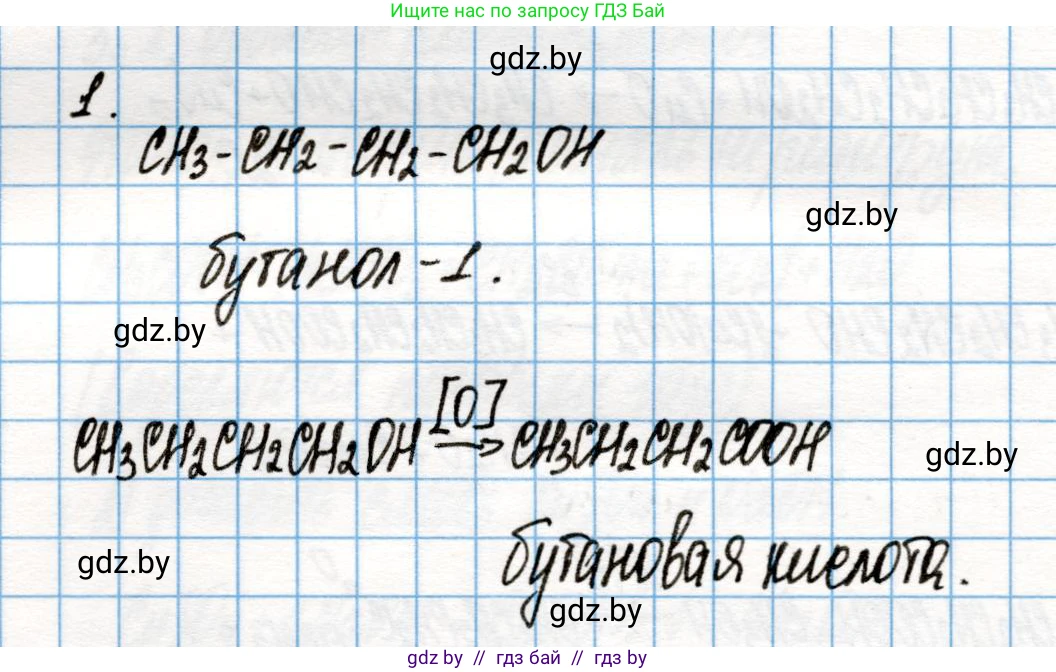 Ищите нас по запросу ГДЗ Бай
gdz.by
1.
CH3-CH2-CH2-CH2OH
gdz.by
бутанол-1.
gdz.by
[O]
CH3CH2CH2CH2OH → CH3CH2CH2COOH
gdz.by
gdz.by
бутановая кислота.
gdz.by
gdz.by // гдз бай // гдз by